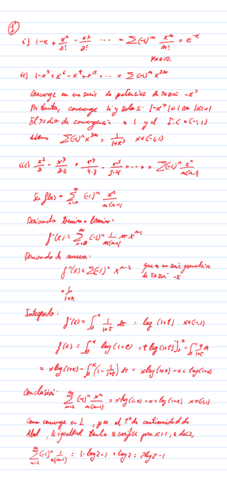 1º
i) 1-x+x²/2!-x³/3! ... = Σ(-1)ⁿ xⁿ/n! = e⁻ˣ
ii) 1-x³+x⁶-x⁹+x¹² ... = Σ(-1)ⁿ x³ⁿ
Converge en una serie de potencias de razón -x³
Por tanto, converge
El radio de convergencia = 1 y el I.C = (-1,1)
Σ(-1)ⁿ x³ⁿ = 1/(1+x³) x∈(-1,1)
iii) x²/2 - x³/3·2 + x⁴/4·3 -
Sea f(x) = Σ (-1)ⁿ xⁿ/n(n-1)
Derivando término a término:
f'(x) = Σ (-1)ⁿ 1/n(n-1) n xⁿ⁻¹
Derivando de nuevo:
f''(x) = Σ(-1)ⁿ xⁿ⁻² que es una serie geométrica
de razón -x
= 1/(1+x)
Integrando:
f'(x) = ∫₀ˣ 1/(1+t) dt = log(1+x) x∈(-1,1)
f(x) = ∫₀ˣ log(1+t) = t log(1+t)]₀ˣ - ∫₀ˣ t/(1+t) dt
= x log(1+x) - ∫₀ˣ(1-1/(1+t)) dt = x log(1+x) - x + log(1+x)
Conclusión: Σ (-1)ⁿ xⁿ/n(n-1) = x log(1+x) - x + log(1+x) x∈(-1,1)
Como converge en 1, por el Tª de continuidad de
Abel, la igualdad también se verifica para x=1, es decir,
Σ(-1)ⁿ 1/n(n-1) = 1·log2-1+log2 = 2log2-1